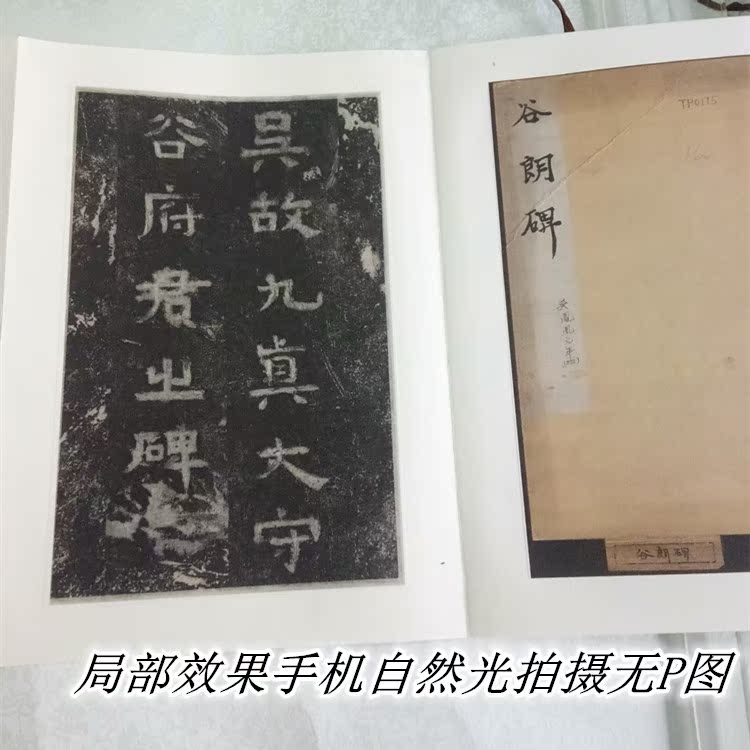 吳故九真大守
谷府君之碑
谷朗碑
TP0175
谷朗碑
局部效果手机自然光拍摄无P图